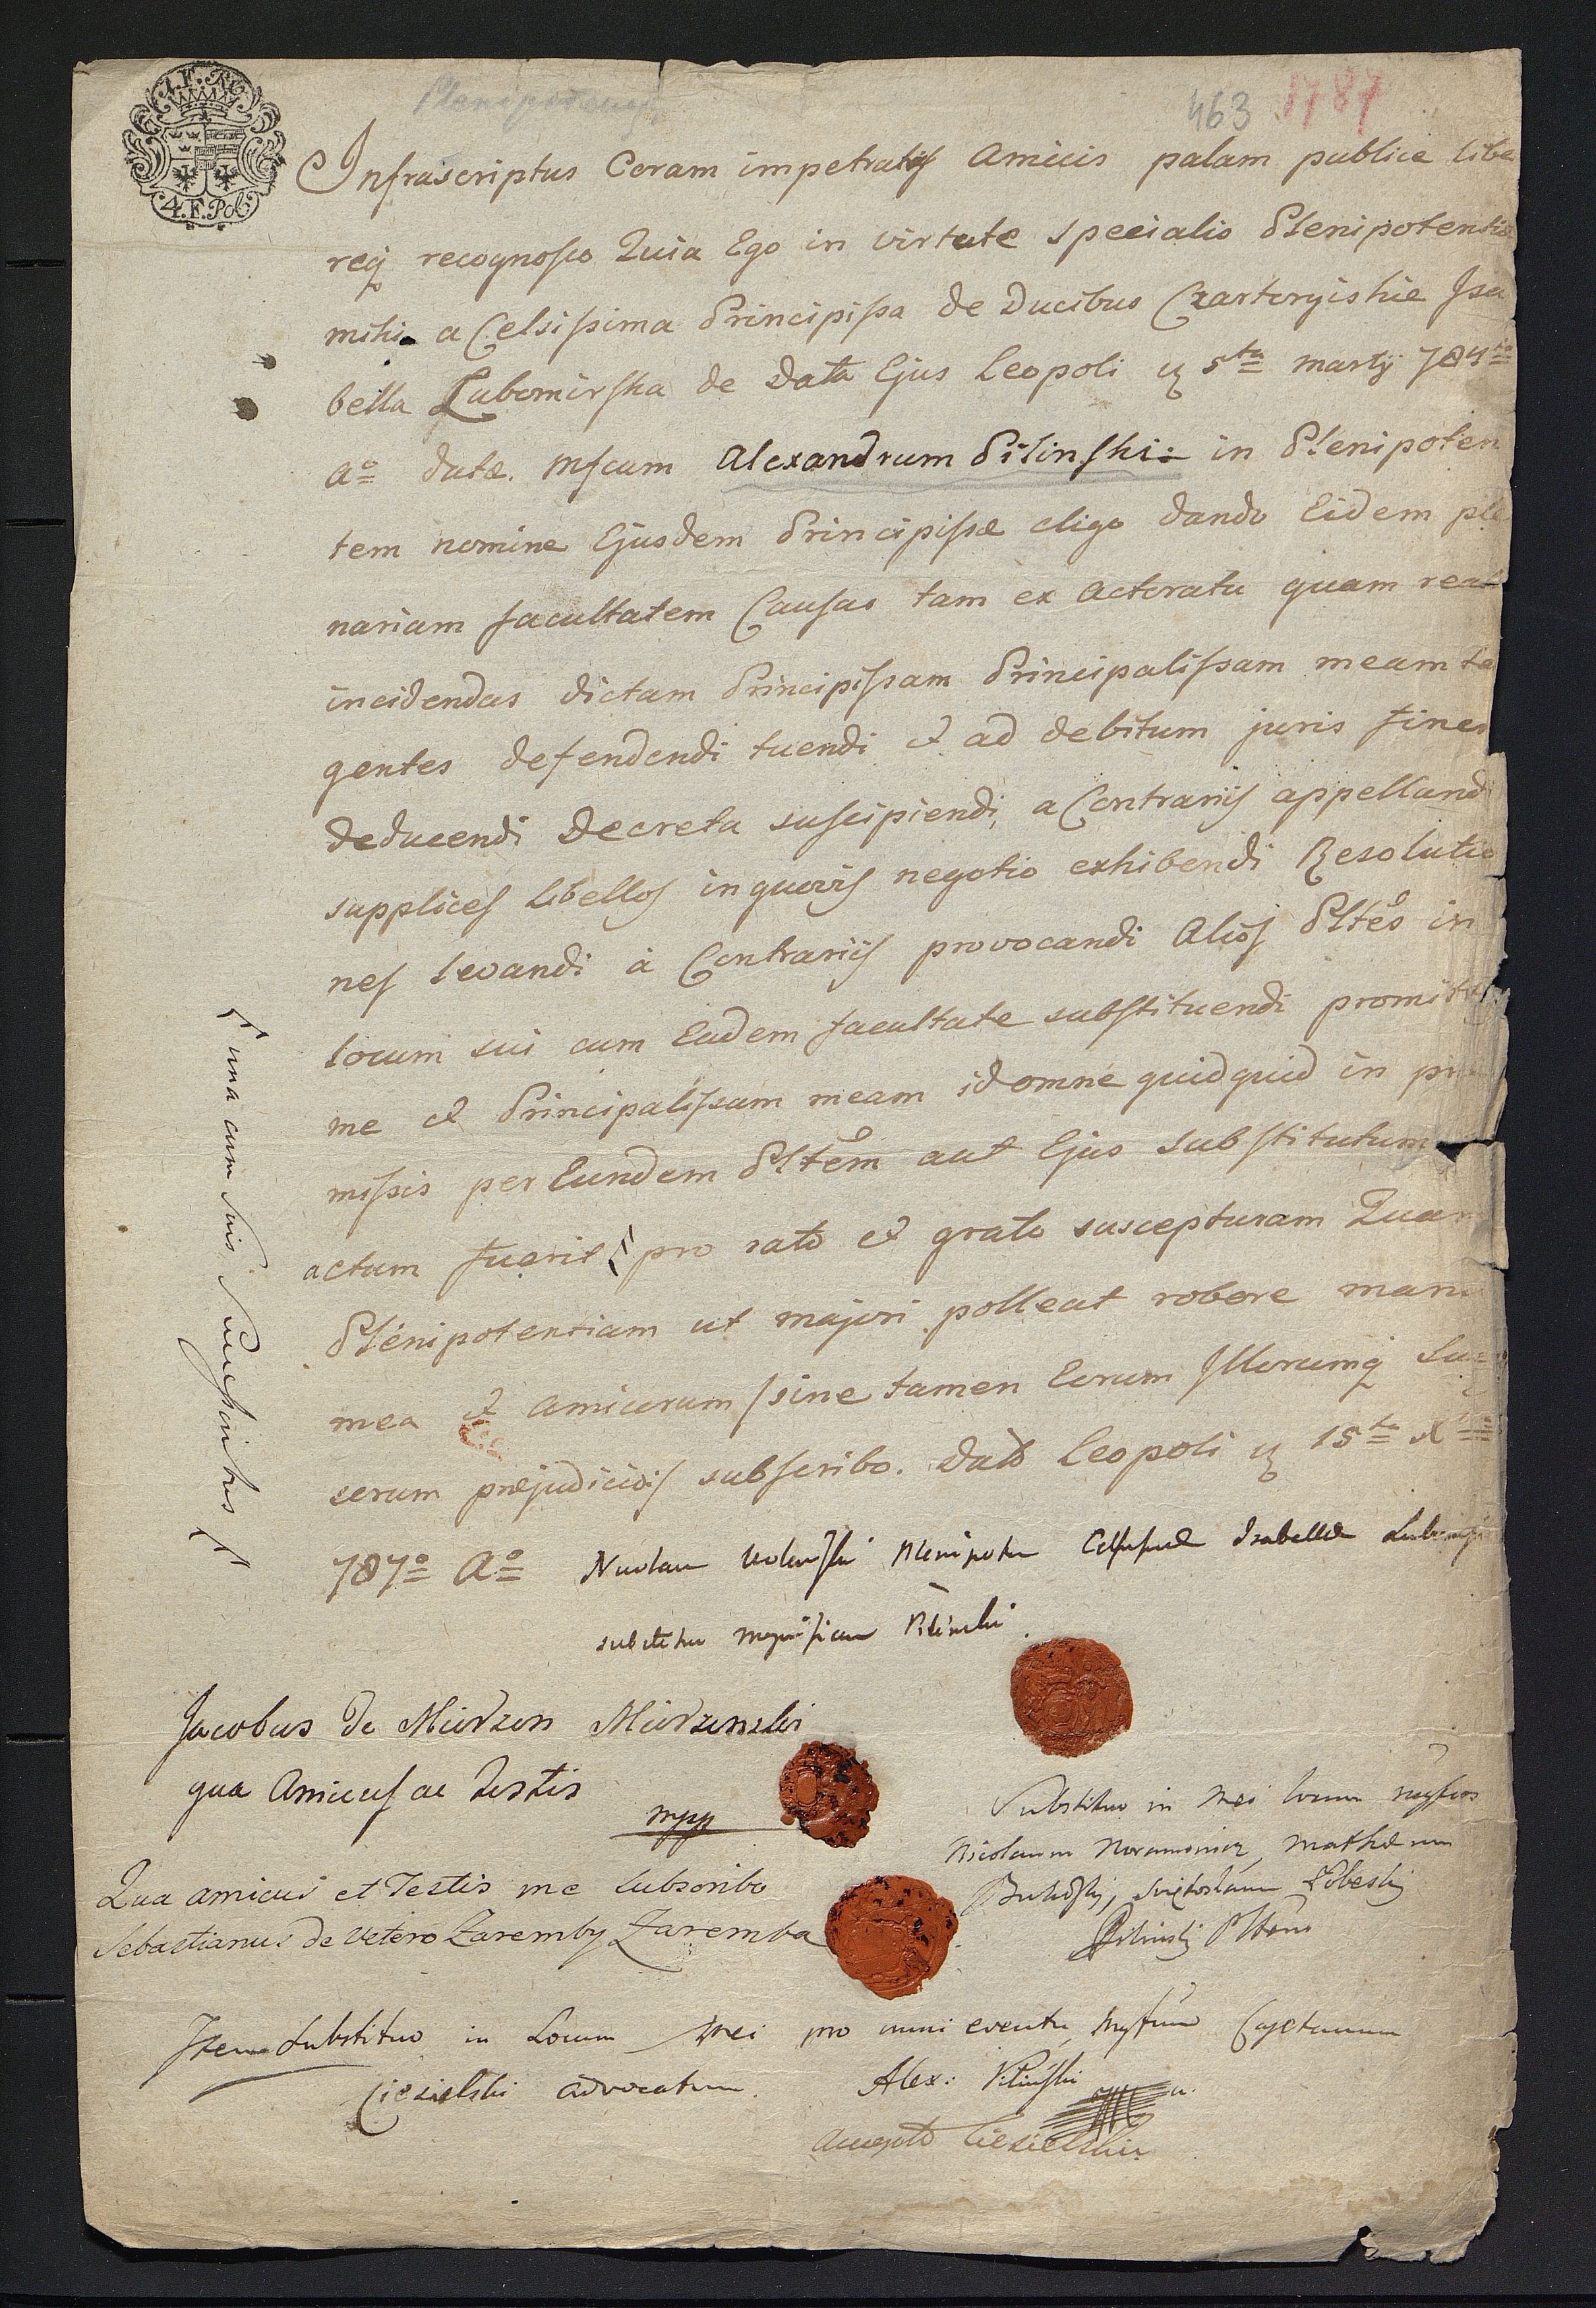 4.F.Pol
463 1787
Infrascriptus Coram impetratis Amicis palam publice libe
req recognosco Quia Ego in virtute specialis Plenipotentiæ
mihi a Celsissima Principissa de Ducibus Czartoryiskie Isa
bella Lubomirska de Data Ejus Leopoli 5ta Martij 784to
Ao datæ. Mfcum Alexandrum Pilinski in Plenipoten
tem nomine Ejusdem Principissæ eligo dando Eidem ple
nariam facultatem Causas tam ex Actoratu quam reat
incidendas dictam Principissam Principalissam meam ta
gentes defendendi tuendi et ad debitum juris finem
deducendi Decreta suscipiendi, a Contrariis appellandi
supplices libellos in quovis negotio exhibendi Resolutio
nes levandi à Contrariis provocandi Alios Pltes in
locum sui cum Eadem facultate substituendi promitto
me et Principalissam meam id omne quidquid in præ
missis per Eundem Pltem aut Ejus Substitutum
actum fuerit pro rato et grato suscepturam Quam
Plenipotentiam ut majori polleat robore manu
mea et Amicorum /sine tamen Eorum Illorumq Suc
serum præjudicio/ subscribo. Dato Leopoli 15ta X
787o Ao Plenipotens Isabellæ
substituo magnificum Pilinski
/ una cum suis Successoribus /
Jacobus de Mierzen Mierzenski
qua Amicus ac Testis
mpp
Qua amicus et Testis me Subscribo
Sebastianus de Vetero Zaremby Zaremba
Substituo in Mei locum
Nicolaum
Pilinski
Item Substituo in Locum Mei pro omni eventu Cajetanum
Ciesielski advocatum.
Alex: Pilinski
Accepto Ciesielski